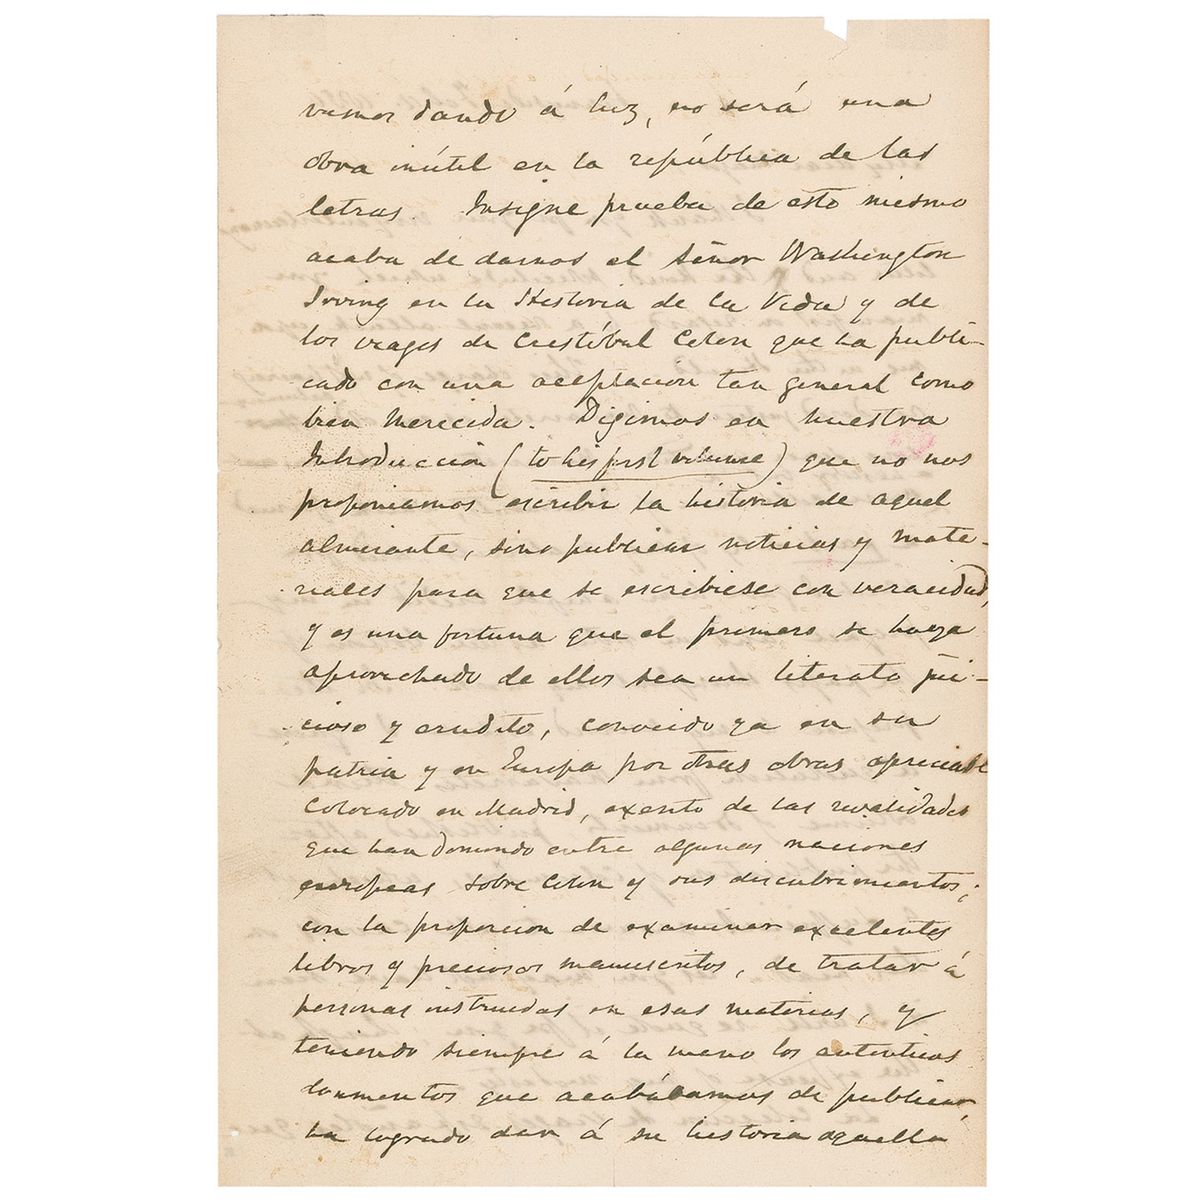 vamos dando á luz, no será una
obra inútil en la república de las
letras. Insigne prueba de esto mismo
acaba de darnos el Señor Washington
Irving en la Historia de la Vida y de
los viages de Cristóbal Colon que ha publi-
cado con una aceptacion tan general como
bien merecida. Digimos en nuestra
Introduccion (to his first volume) que no nos
proponiamos escribir la historia de aquel
almirante, sino publicar noticias y mate-
riales para que se escribiese con veracidad,
y es una fortuna que el primero se haya
aprovechado de ellos sea un literato jui-
cioso y erudito, conocido ya en su
patria y en Europa por otras obras apreciabl
Colocado en Madrid, exento de las rivalidades
que han domindo entre algunas naciones
europeas sobre Colon y sus discubrimientos;
con la proporcion de examinar excelentes
libros y preciosos manuscritos, de tratar á
personas instruidas en esas materias, y
teniendo siempre á la mano los autenticos
documentos que acabábamos de publicar,
ha logrado dar á su historia aquella